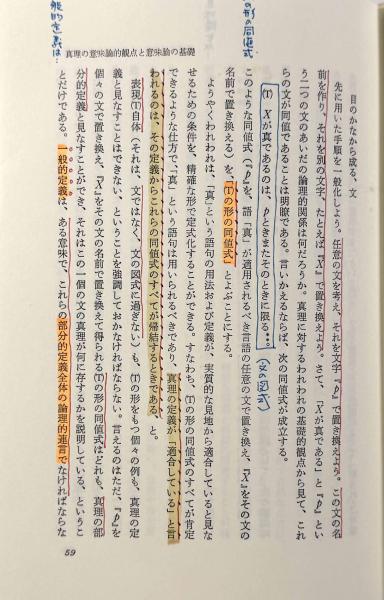 目のかなから成る、文
先に用いた手順を一般化しよう。任意の文を考え、それを文字『p』で置き換えよう。この文の名
前を作り、それを別の文字、たとえば『X』で置き換えよう。さて、『Xは真である』と『p』とい
う二つの文のあいだの論理的関係は何だろうか。真理に対するわれわれの基礎的観点から見て、これ
らの文が同値であることは明瞭である。言いかえるならば、次の同値式が成立する。
(T) Xが真であるのは、pときまたそのときに限る…
(文の図式)
このような同値式(『p』を、語「真」が適用されるべき言語の任意の文で置き換え、『X』をその文の
名前で置き換える)を「(T)の形の同値式」とよぶことにする。
ようやくわれわれは、「真」という語句の用法および定義が、実質的な見地から適合していると見な
せるための条件を、精確な形で定式化することができる。すなわち、(T)の形の同値式のすべてが肯定
できるような仕方で、「真」という語句は用いられるべきであり、真理の定義が「適合している」と言
われるのは、その定義からこれらの同値式のすべてが帰結するときである、と。
表現(T)自体(それは、文ではなく、文の図式に過ぎない)も、(T)の形をもつ個々の例も、真理の定
義と見なすことはできない、ということを強調しておかなければならない。言えるのはただ、『p』を
個々の文で置き換え、『X』をその文の名前で置き換えて得られる(T)の形の同値式はどれも、真理の部
分的定義と見なすことができ、それはこの一個の文の真理が何に存するかを説明している、というこ
とだけである。一般的定義は、ある意味で、これらの部分的定義全体の論理的連言でなければならな
真理の意味論的観点と意味論の基礎
59
の形の同値式
般的定義は…